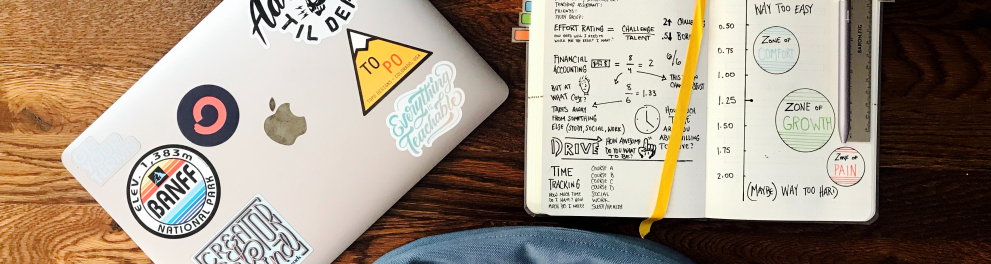 TIL DEATH
TOPO
Everything is
Teachable
ELEV. 1,383m
BANFF
NATIONAL PARK
CREATIVE
Kind
STUDY GROUP:
EFFORT RATING = CHALLENGE
TALENT
FINANCIAL
ACCOUNTING
8
4
= 2
6/6
BUT AT
WHAT COST?
8
6
= 1.33
TAKES AWAY
FROM SOMETHING
ELSE (STUDY, SOCIAL, WORK)
DRIVE
HOW AWESOME
DO YOU WANT
TO BE?
TIME
TRACKING
COURSE A
COURSE B
COURSE C
COURSE D
SOCIAL
WORK
SLEEP/HEALTH
HOW MUCH TIME
DO I HAVE? HOW
MUCH DO I NEED?
WAY TOO EASY
0.50
0.75
1.00
1.25
1.50
1.75
2.00
ZONE OF
COMFORT
ZONE OF
GROWTH
ZONE OF
PAIN
(MAYBE) WAY TOO HARD